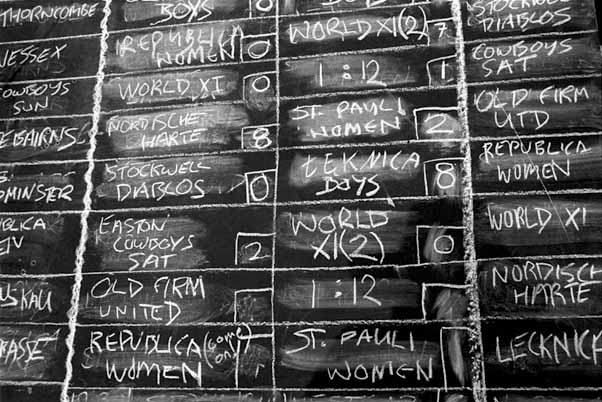 THORNCOMBE
BOYS
STOCKWELL
DIABLOS
WESSEX
REPUBLICA
WOMEN 0
WORLD XI(2) 7
COWBOYS
SAT
COWBOYS
SUN
WORLD XI 0
1:12 1
OLD FIRM
UTD
NORDISCHE
HARTE 8
ST. PAULI
WOMEN 2
REPUBLICA
WOMEN
STOCKWELL
DIABLOS 0
TEKNICA
BOYS 8
WORLD XI
EASTON
COWBOYS
SAT 2
WORLD
XI(2) 0
NORDISCH
HARTE
OLD FIRM
UNITED
1:12
LECKNICK
REPUBLICA (come
on!)
WOMEN
ST. PAULI
WOMEN